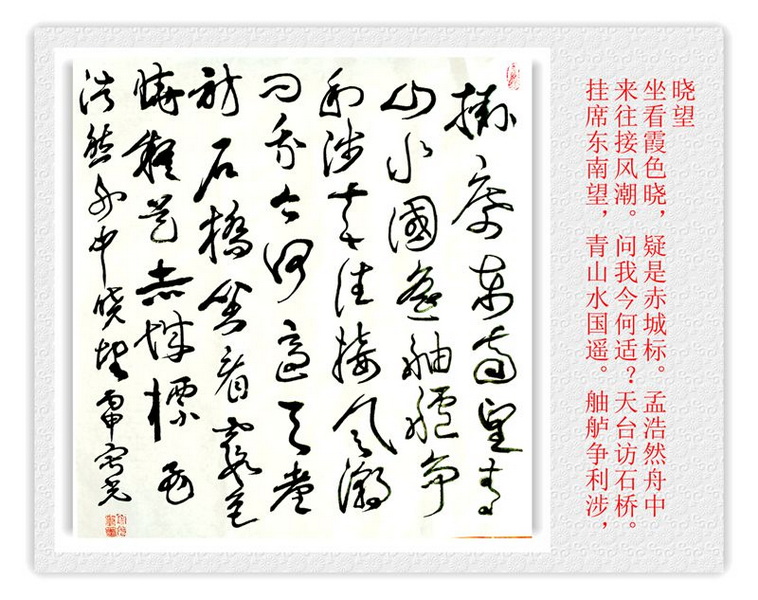 掛席東南望青
山水國遥舳艫争
利涉来往接風潮
問我今何適天臺
訪石橋坐看霞色
曉疑是赤城標孟
浩然舟中曉望
挂席东南望，青山水国遥。舳舻争利涉，
来往接风潮。问我今何适？天台访石桥。
坐看霞色晓，疑是赤城标。孟浩然舟中
晓望